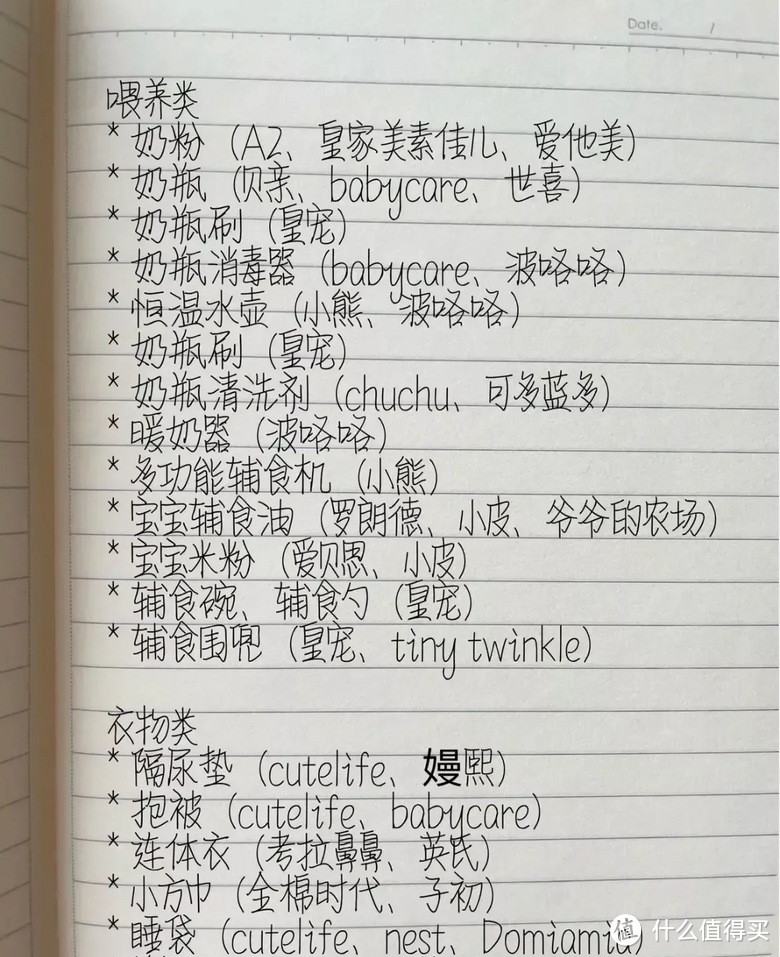 Date.      /
喂养类
* 奶粉（A2、皇家美素佳儿、爱他美）
* 奶瓶（贝亲、babycare、世喜）
* 奶瓶刷（皇宠）
* 奶瓶消毒器（babycare、波咯咯）
* 恒温水壶（小熊、波咯咯）
* 奶瓶刷（皇宠）
* 奶瓶清洗剂（chuchu、可多蓝多）
* 暖奶器（波咯咯）
* 多功能辅食机（小熊）
* 宝宝辅食油（罗朗德、小皮、爷爷的农场）
* 宝宝米粉（爱贝思、小皮）
* 辅食碗、辅食勺（皇宠）
* 辅食围兜（皇宠、tiny twinkle）
衣物类
* 隔尿垫（cutelife、嫚熙）
* 抱被（cutelife、babycare）
* 连体衣（考拉鼻鼻、英氏）
* 小方巾（全棉时代、子初）
* 睡袋（cutelife、nest、Domiamia）
值 什么值得买